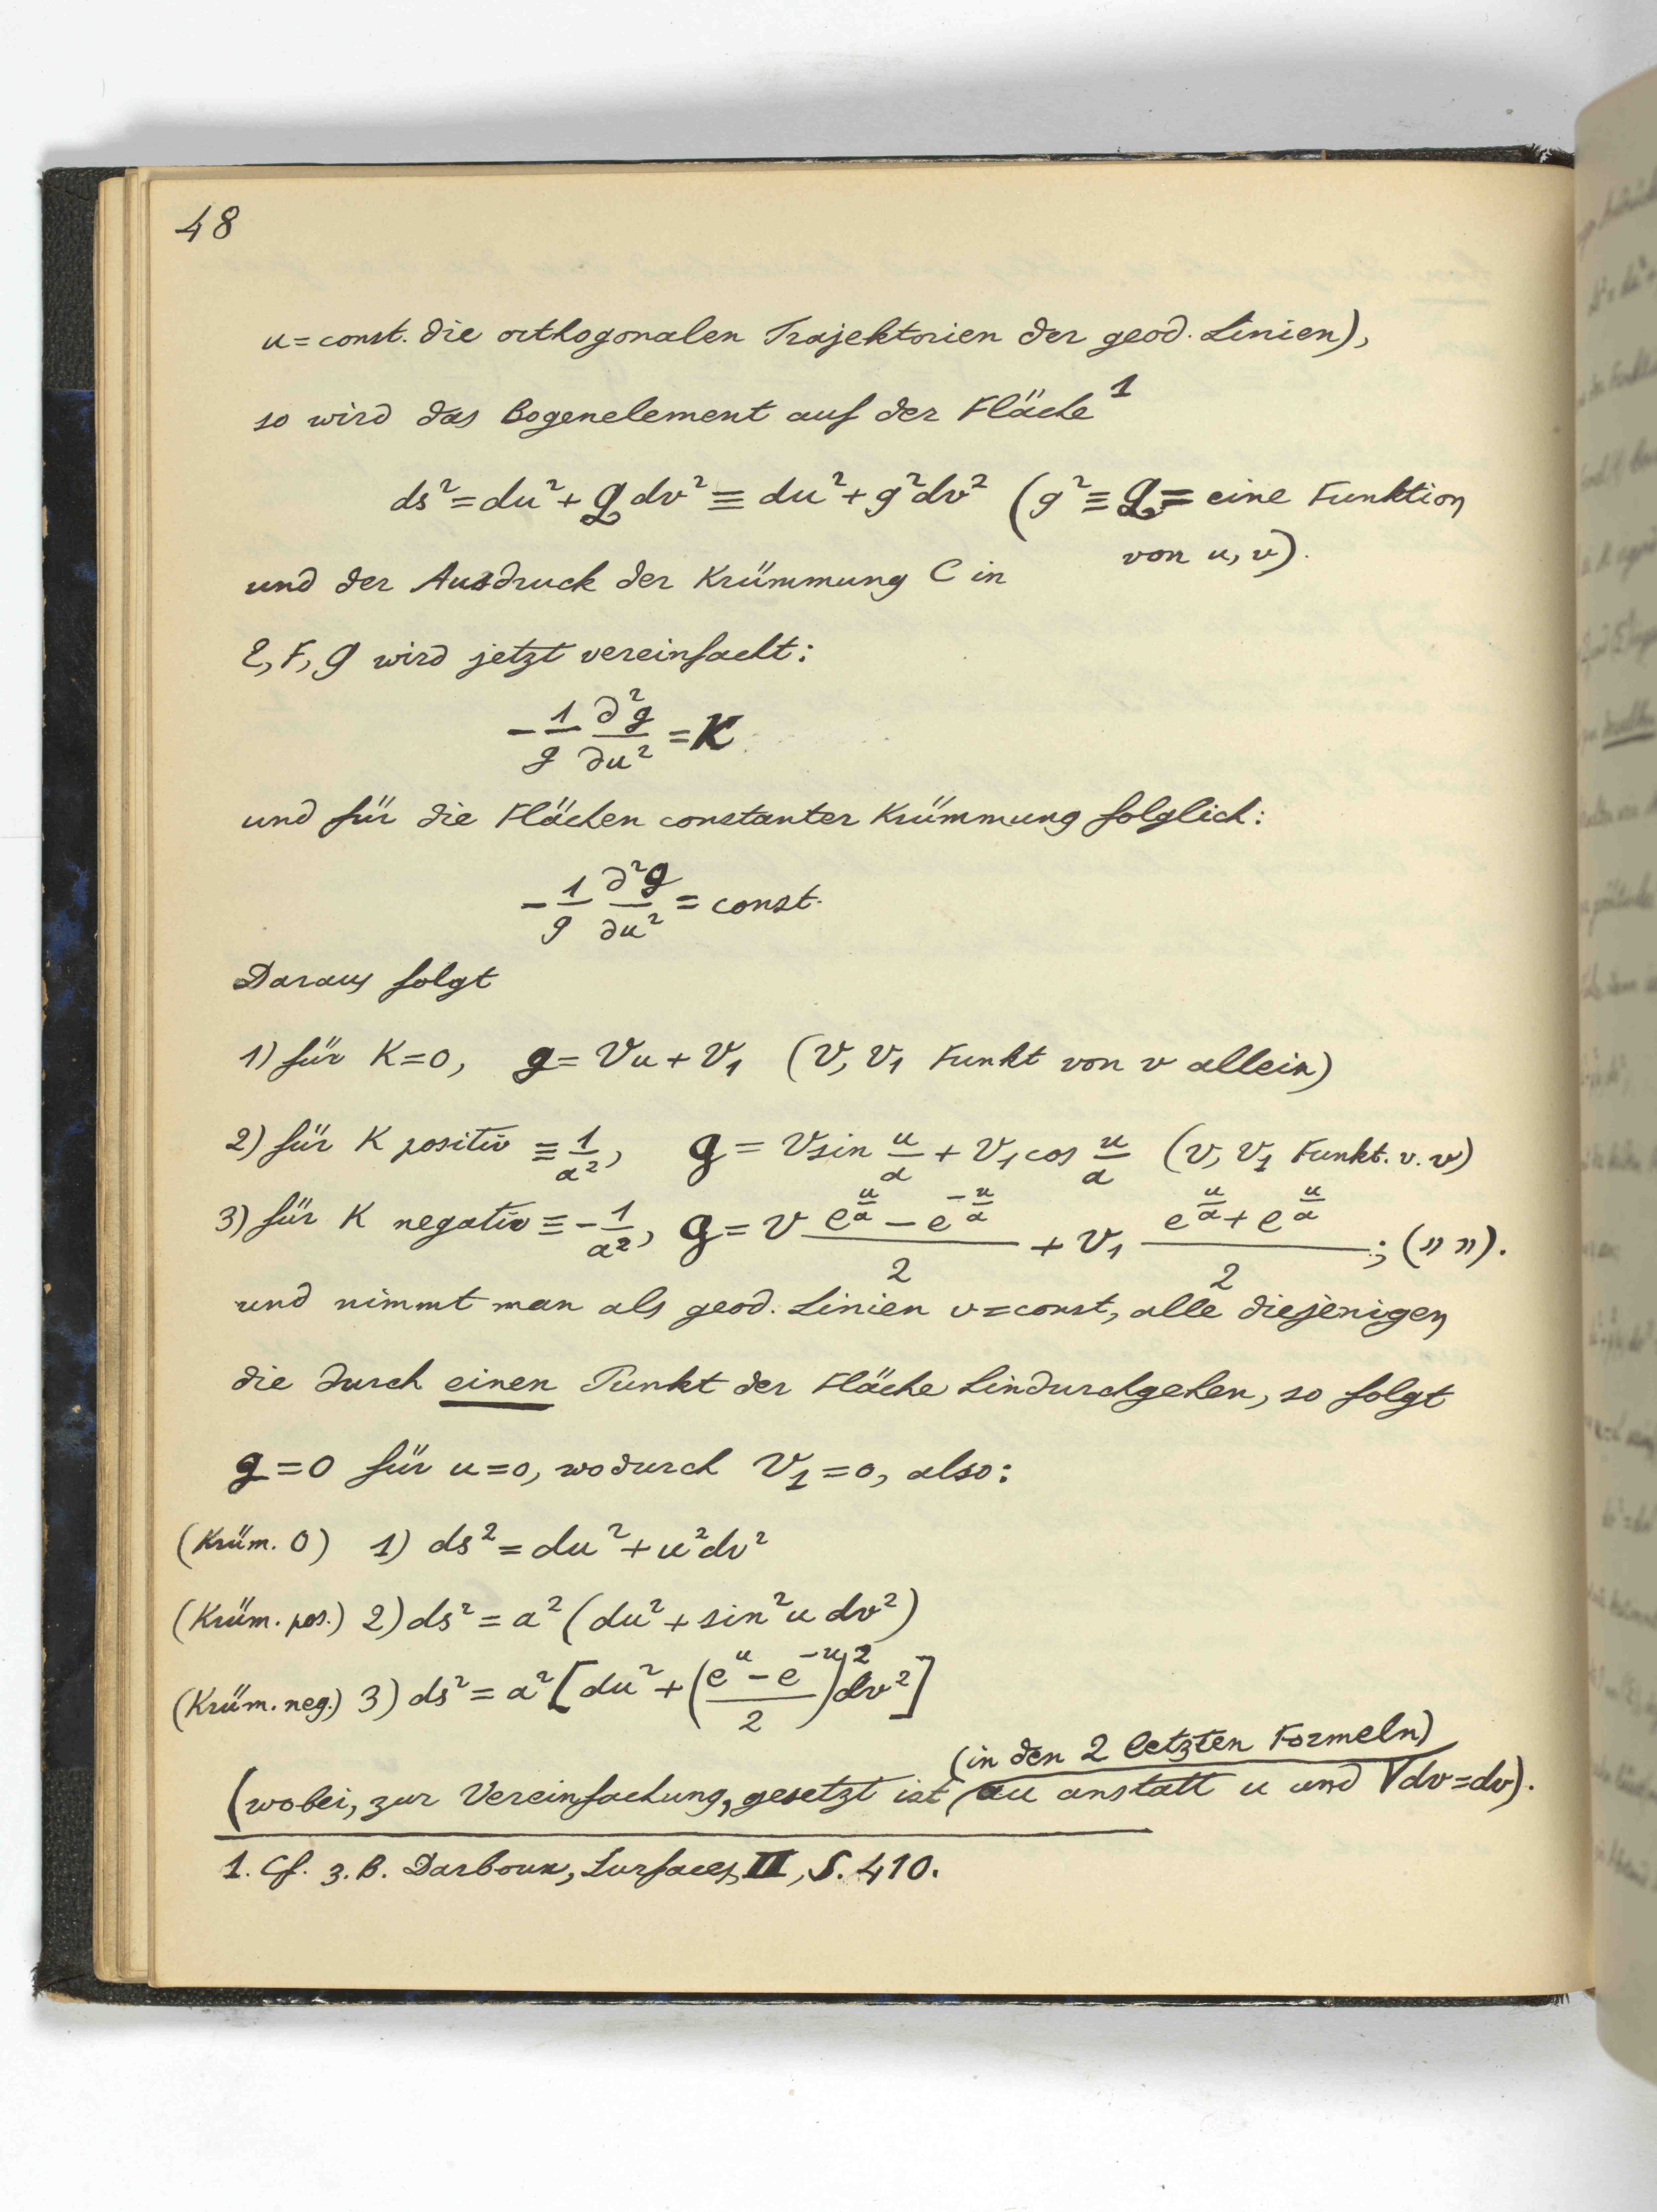 48
u = const. die orthogonalen Trajektorien der geod. Linien),
so wird das Bogenelement auf der Fläche ¹
ds² = du² + G dv² ≡ du² + g²dv² (g² ≡ G = eine Funktion
von u, v).
und der Ausdruck der Krümmung C in
E, F, G wird jetzt vereinfacht:
-1/g ∂²g/∂u² = K
und für die Flächen constanter Krümmung folglich:
-1/g ∂²g/∂u² = const.
Daraus folgt
1) für K=0, g = Vu + V₁ (V, V₁ Funkt von v allein)
2) für K positiv ≡ 1/a², g = V sin u/a + V₁ cos u/a (V, V₁ Funkt. v. v)
3) für K negativ ≡ -1/a², g = V (e^(u/a) - e^(-u/a))/2 + V₁ (e^(u/a) + e^(u/a))/2; (" ").
und nimmt man als geod. Linien v=const, alle diejenigen
die durch einen Punkt der Fläche hindurchgehen, so folgt
g=0 für u=0, wodurch V₁=0, also:
(Krüm. 0) 1) ds² = du² + u²dv²
(Krüm. pos.) 2) ds² = a² (du² + sin²u dv²)
(Krüm. neg.) 3) ds² = a² [du² + ((e^u - e^-u)/2)² dv²]
(in den 2 letzten Formeln)
(wobei, zur Vereinfachung, gesetzt ist au anstatt u und Vdv=dv).
1. Cf. z. B. Darboux, Surfaces, II, S. 410.